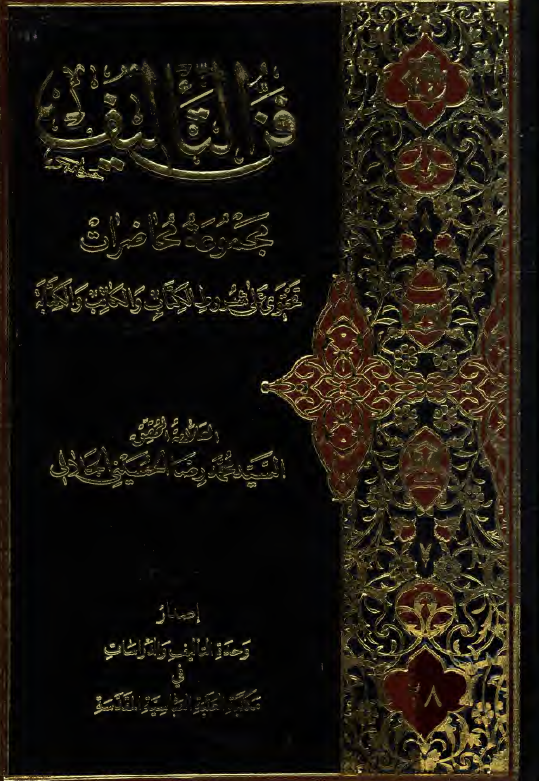 فن التأليف
مجموعة محاضرات
تحتوي على شروط الكتاب والكاتب والكتابة
العلامة المحقق
السيد محمد رضا الحسيني الجلالي
إصدار
وحدة التأليف والدراسات
في
مكتبة العتبة العباسية المقدسة
٨